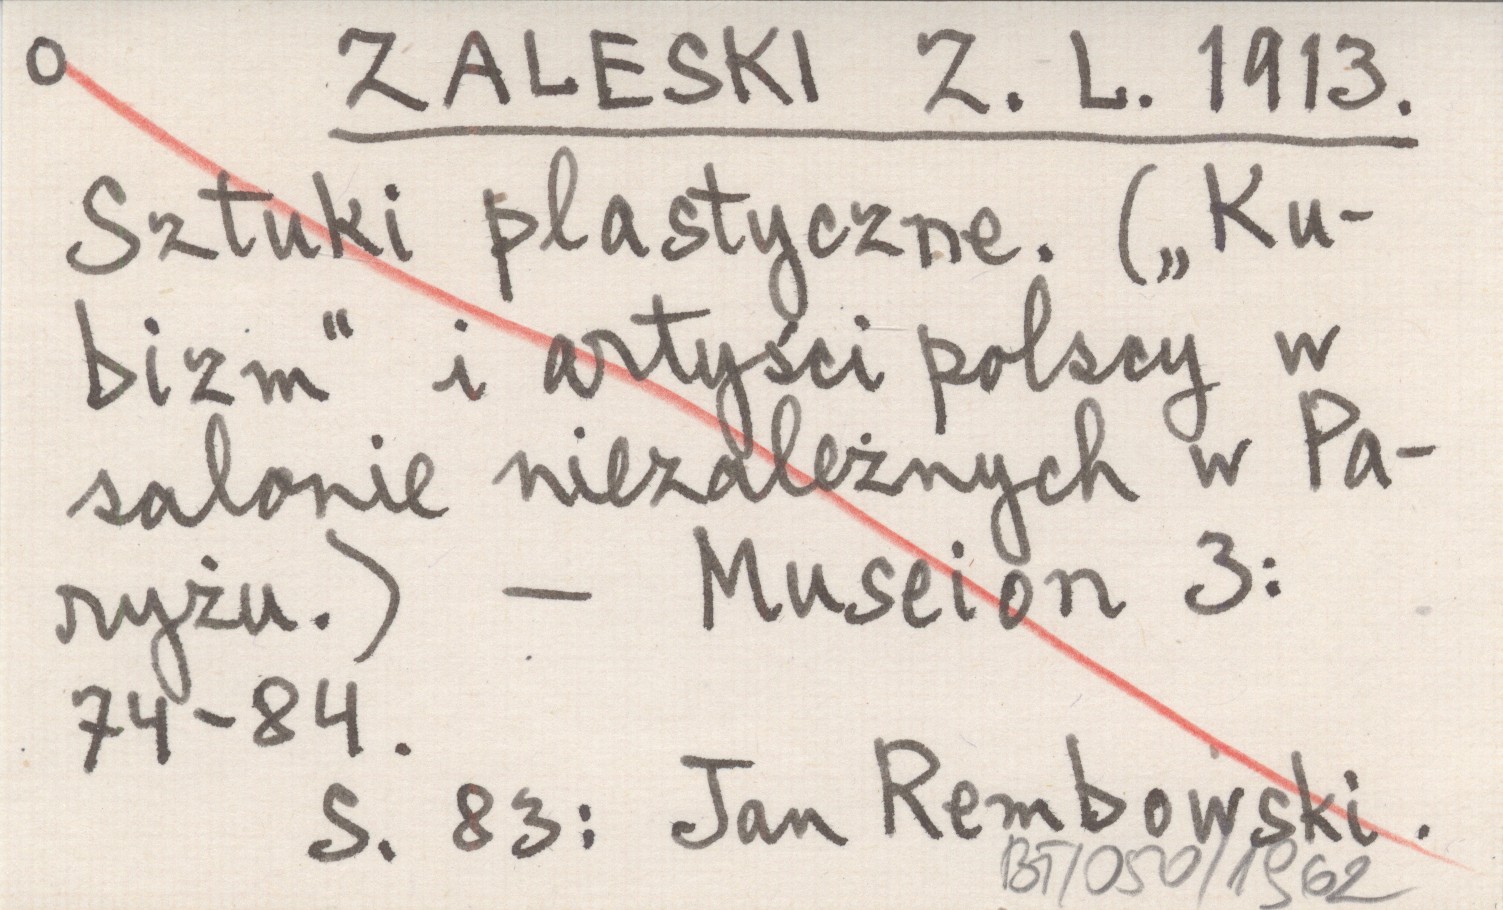 o ZALESKI Z. L. 1913.
Sztuki plastyczne. („Ku-
bizm" i artyści polscy w
salonie niezależnych w Pa-
ryżu.) — Museion 3:
74-84.
S. 83: Jan Rembowski.
BT/050/1962